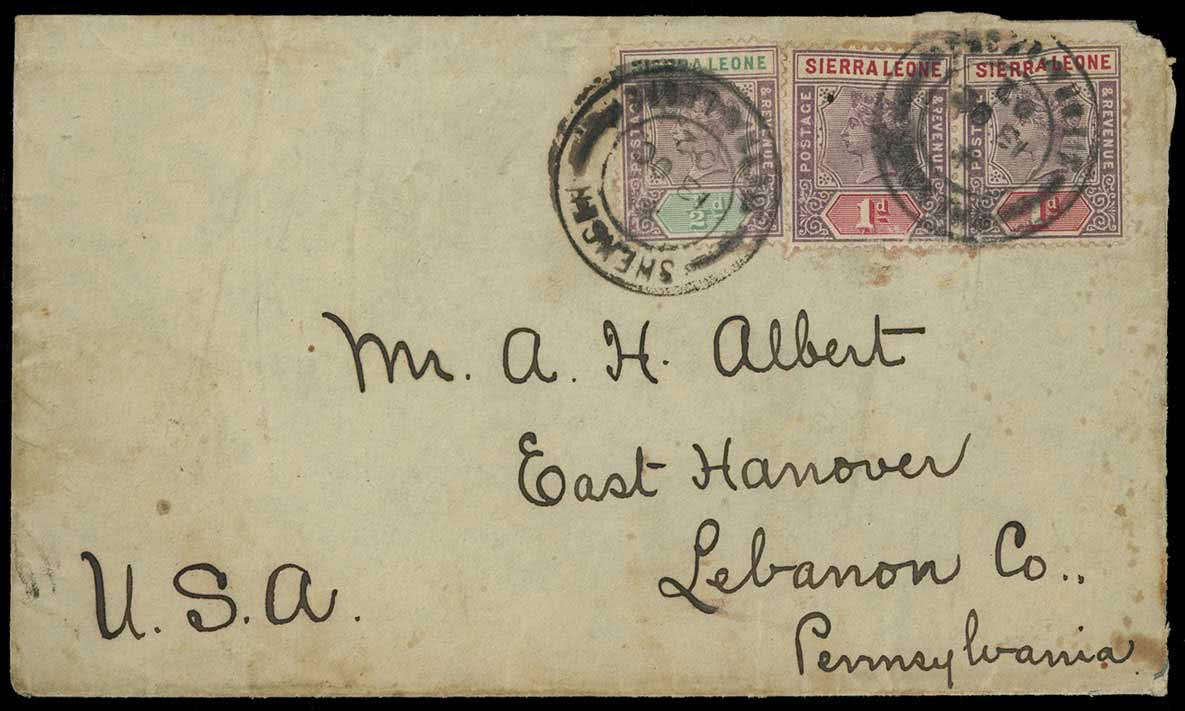 SIERRA LEONE
POSTAGE
& REVENUE
½d
SIERRA LEONE
POSTAGE
& REVENUE
1d
SIERRA LEONE
POSTAGE
& REVENUE
1d
Mr. A. H. Albert
East Hanover
Lebanon Co.,
Pennsylvania
U.S.A.